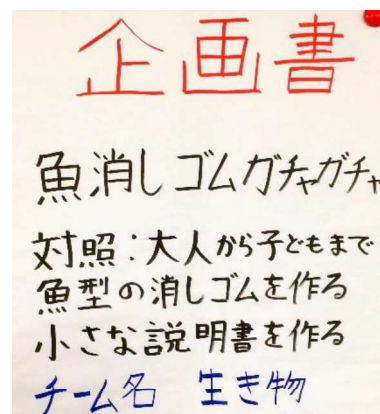 企画書
魚消しゴムガチャガチャ
対照：大人から子どもまで
魚型の消しゴムを作る
小さな説明書を作る
チーム名 生き物